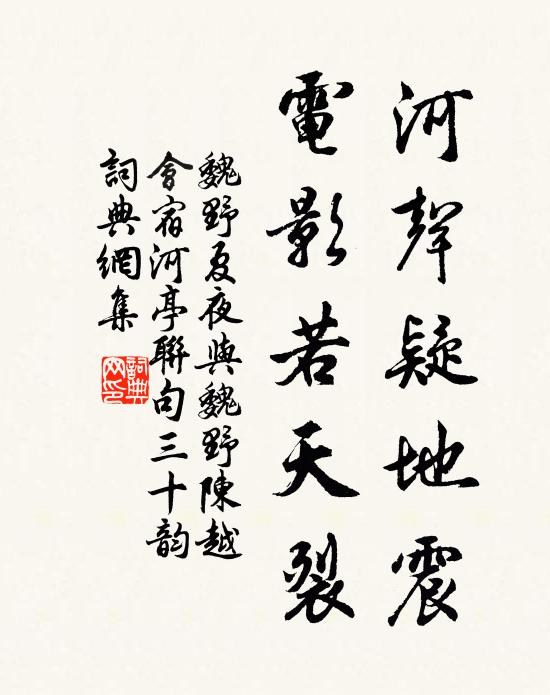 河聲疑地震
電影若天裂
魏野夏夜與魏野陳越
會宿河亭聯句三十韵
詞典網集
詞典網印